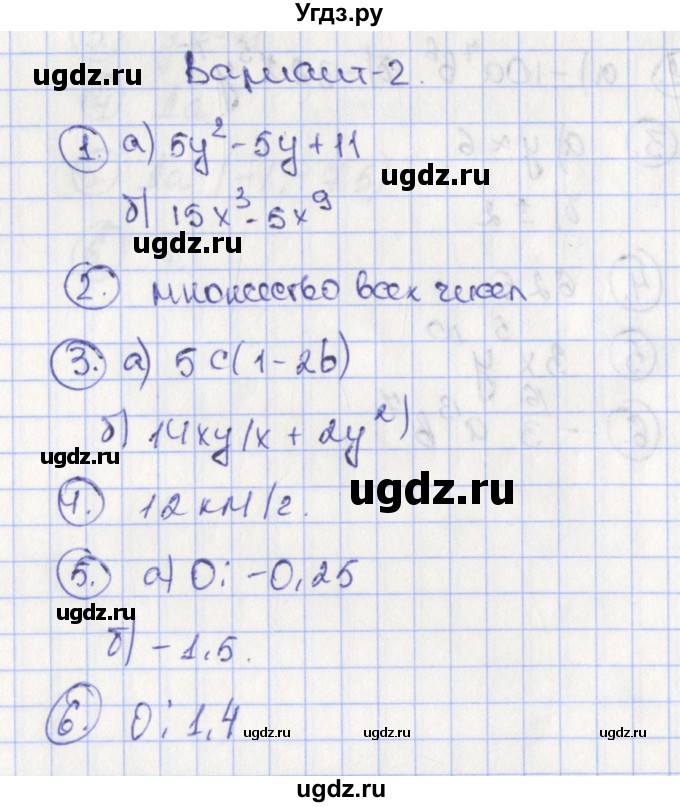 Угдз.ру
ugdz.ru
Вариант-2.
1. а) 5y² - 5y + 11
ugdz.ru
б) 15x³ - 5x⁹
ugdz.ru
2. множество всех чисел
3. а) 5c(1-2b)
б) 14xy(x + 2y²)
ugdz.ru
ugdz.ru
4. 12 км/г.
5. а) 0; -0,25
ugdz.ru
б) -1,5.
6. 0; 1,4
ugdz.ru
ugdz.ru
ugdz.ru